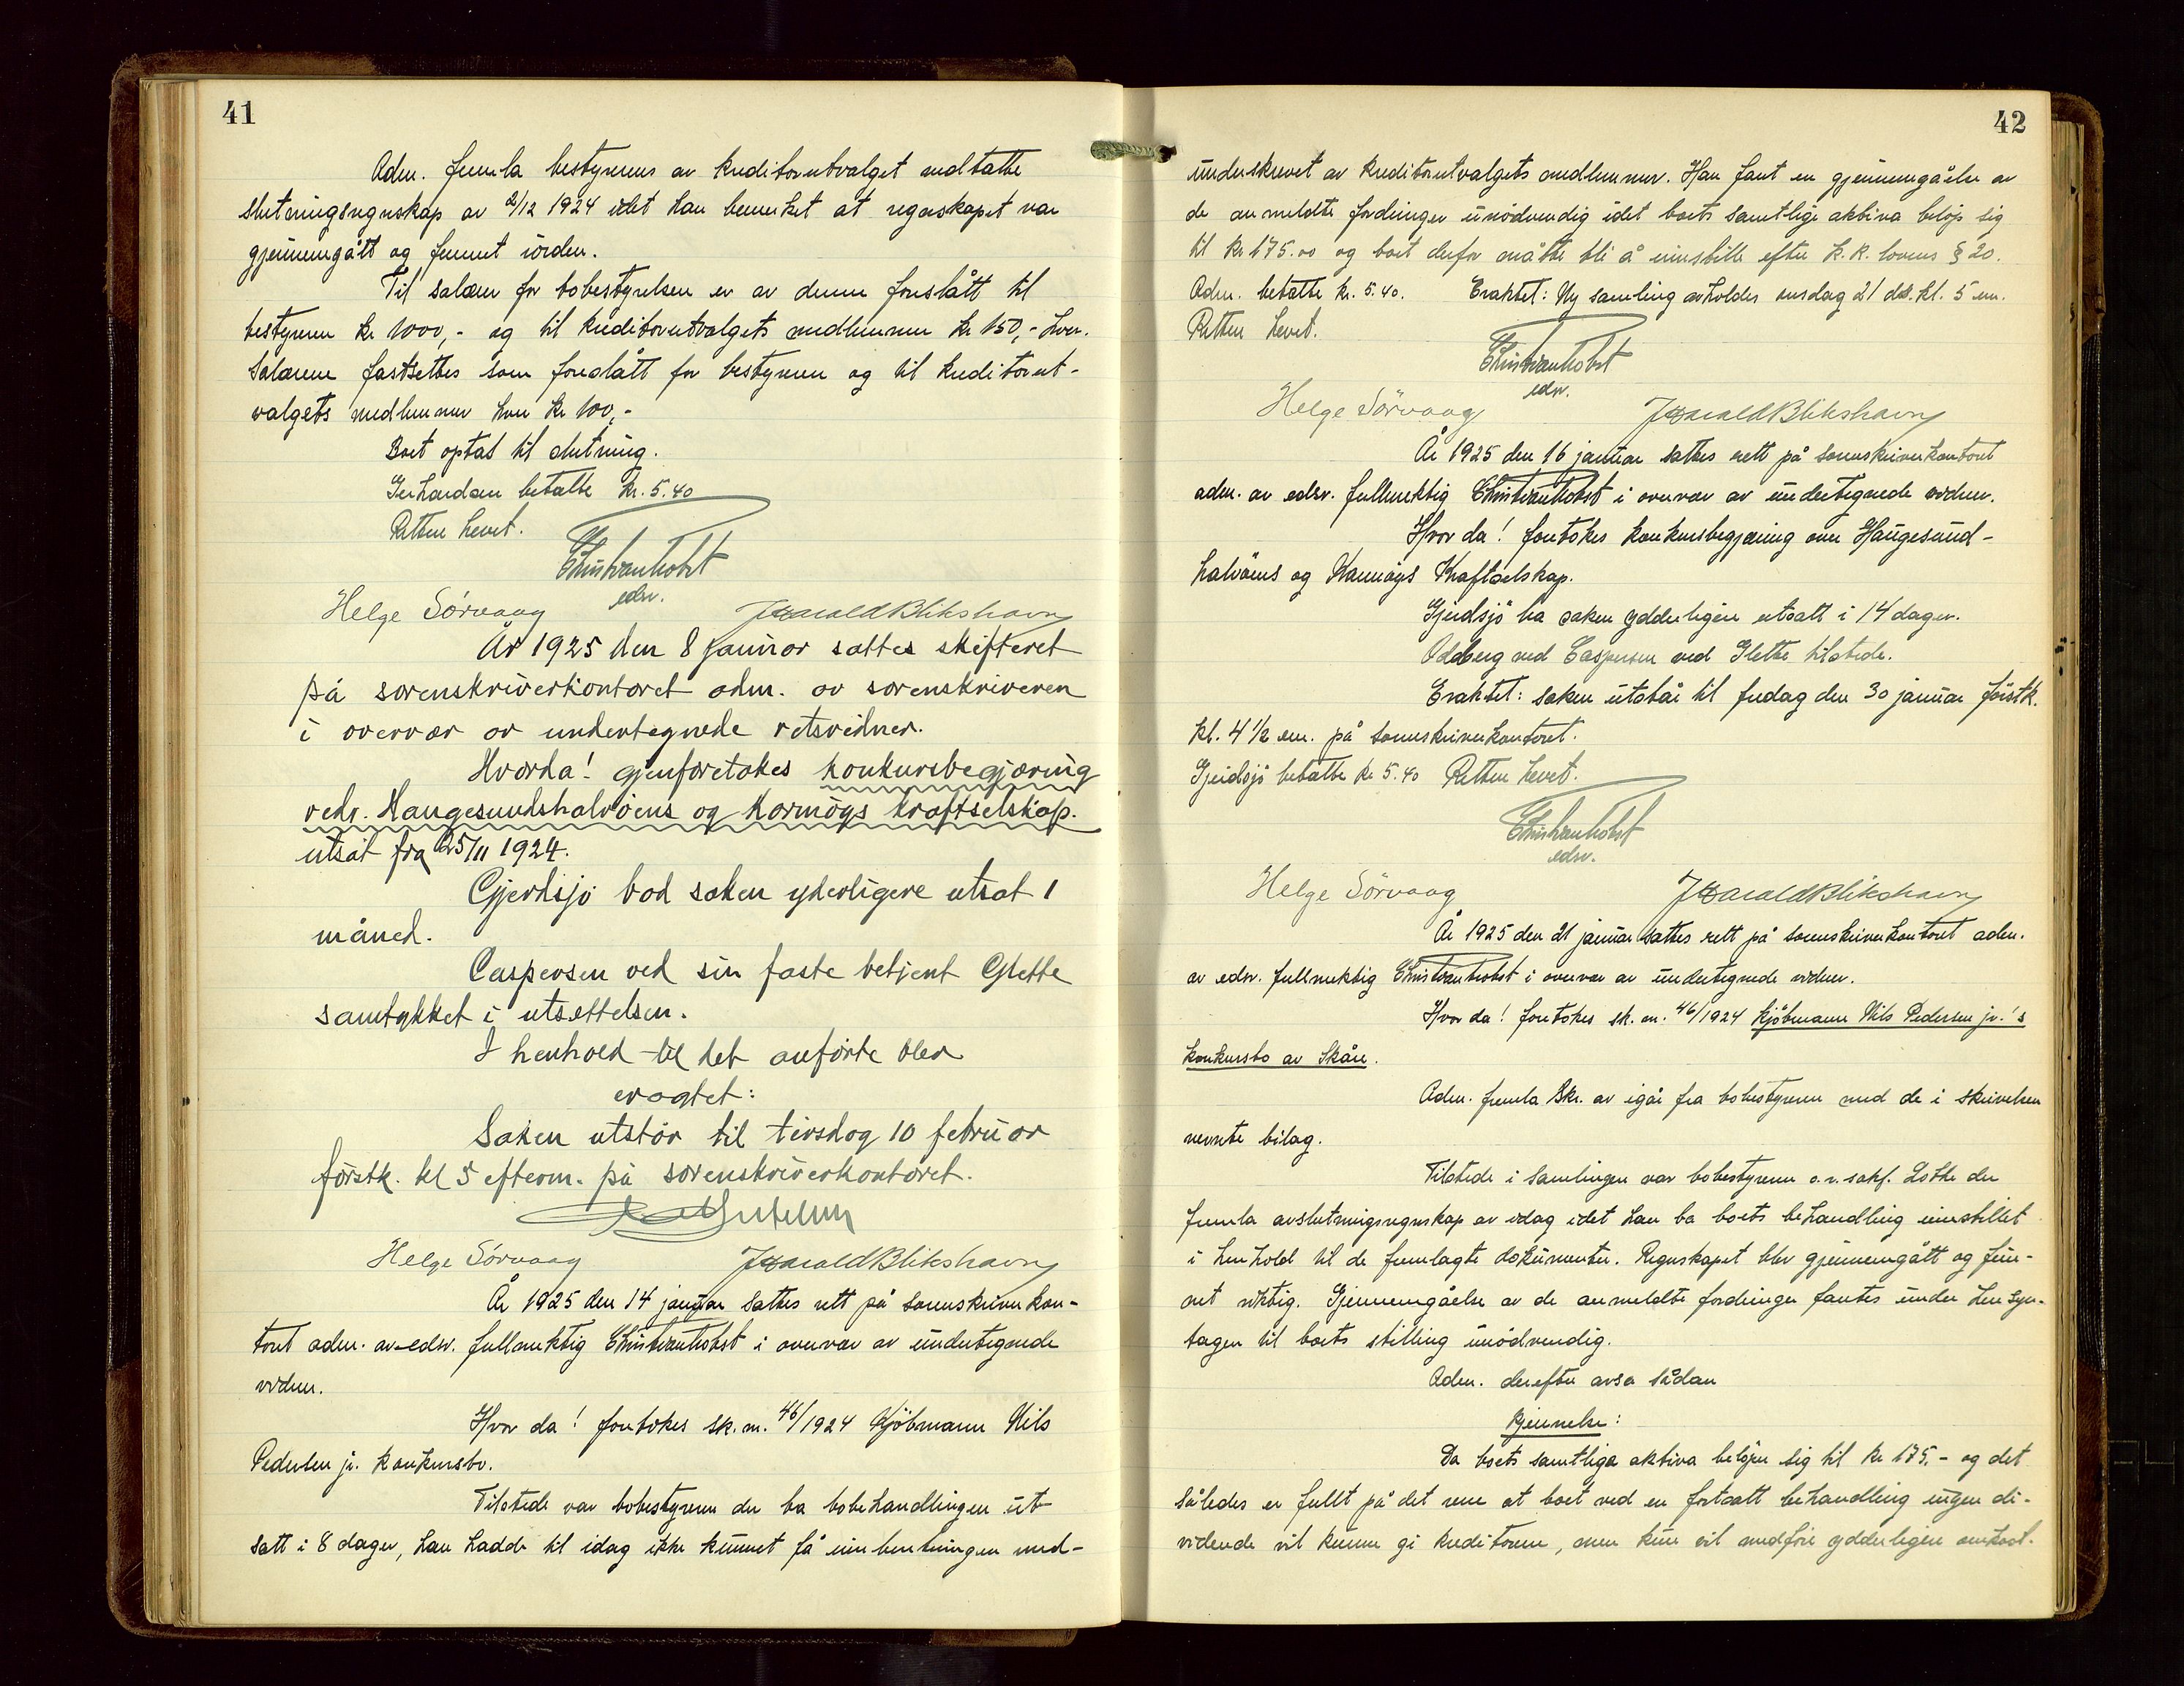 41
Adm. fremla bestyrerens av kreditorutvalget mottatte
slutningsregnskap av 2/12 1924 idet han bemerket at regnskapet var
gjennemgått og funnet iorden.
Til salær for bobestyrelsen er av denne foreslått til
bestyreren kr 1000,- og til kreditorutvalgets medlemmer kr 150,- hver.
Salærene fastsettes som foreslått for bestyreren og til kreditorut-
valgets medlemmer hver kr 100,-
Boet optas til slutning.
Gerhardsen betalte kr. 5.40
Retten hevet.
Chr. Svanholst
edsv.
Helge Sörvaag Harald Blikshavn
År 1925 den 8 januar sattes skifteret
på sorenskriverkontoret adm. av sorenskriveren
i overvær av undertegnede retsvidner.
Hvorda! gjenforetokes konkursbegjæring
vedr. Haugesundshalvöens og Karmöys kraftselskap.
utsat fra 25/11 1924.
Gjerdsjö bad saken yderligere utsat 1
måned.
Caspersen ved sin faste betjent Glette
samtykket i utsettelsen.
I henhold til det anförte blev
eragtet:
Saken utstår til tirsdag 10 februar
förstk. kl 5 efterm. på sorenskriverkontoret.
Helge Sörvaag Harald Blikshavn
År 1925 den 14 januar sattes rett på sorenskriverkon-
toret adm. av edsv. fullmektig Chr. Svanholst i overvær av undertegnede
vidner.
Hvor da! foretokes sk. nr. 46/1924 Kjöbmann Nils
Pedersen jr. konkursbo.
Tilstede var bobestyreren der ba bobehandlingen ut-
satt i 8 dager, han hadde til idag ikke kunnet få innberetningen med-
42
underskrevet av kreditorutvalgets medlemmer. Han fant en gjennemgåelse av
de anmeldte fordringer unödvendig idet boets samtlige aktiva belöp sig
til kr 175.00 og boet derfor måtte bli å innstille efter k.k. lovens § 20.
Adm. betalte kr. 5.40. Eraktet: Ny samling avholdes onsdag 21 ds. kl. 5 em.
Retten hevet.
Chr. Svanholst
edsv.
Helge Sörvaag Harald Blikshavn
År 1925 den 16 januar sattes rett på sorenskriverkontoret
adm. av edsv. fullmektig Chr. Svanholst i overvær av undertegnede vidner.
Hvor da! foretokes konkursbegjæring over Haugesund-
halvöens og Karmöys Kraftselskap.
Gjerdsjö ba saken ydderligere utsatt i 14 dager.
Oddberg ved Caspersen ved Glette tilstede.
Eraktet: saken utstår til fredag den 30 januar förstk.
kl. 4 1/2 em. på sorenskriverkontoret.
Gjerdsjö betalte kr 5.40 Retten hevet.
Chr. Svanholst
edsv.
Helge Sörvaag Harald Blikshavn
År 1925 den 21 januar sattes rett på sorenskriverkontoret adm.
av edsv. fullmektig Chr. Svanholst i overvær av undertegnede vidner.
Hvor da! foretokes sk. nr. 46/1924 Kjöbmann Nils Pedersen jr.'s
konkursbo av Skåre.
Adm. fremla skr. av igår fra bobestyreren med de i skrivelsen
nevnte bilag.
Tilstede i samlingen var bobestyreren o.r.sakf. Lothe der
fremla avslutningsregnskap av idag idet han ba boets behandling innstillet
i henhold til de fremlagte dokumenter. Regnskapet blev gjennemgått og fun-
net riktig. Gjennemgåelse av de anmeldte fordringer fantes under hensyn-
tagen til boets stilling unödvendig.
Adm. derefter avsa sådan
Kjennelse:
Da boets samtlige aktiva belöper sig til kr 175.- og det
således er fullt på det rene at boet ved en fortsatt behandling ingen di-
vidende vil kunne gi kreditorene, men kun vil medföre ydderligere omkost-